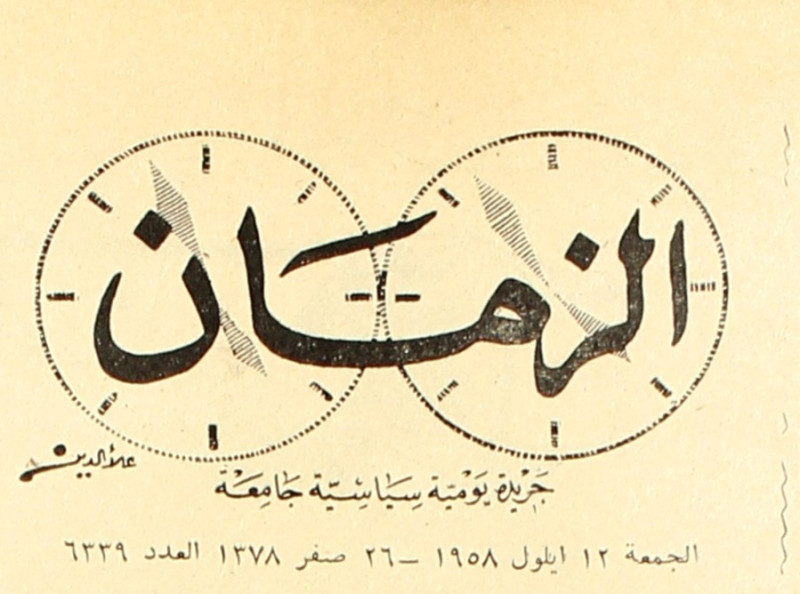 الزمان
علاء الدين
جَريْدة يَوْميّة سِيَاسْيّة جَامِعَة
الجمعة ١٢ ايلول ١٩٥٨ – ٢٦ صفر ١٣٧٨ العدد ٦٣٣٩